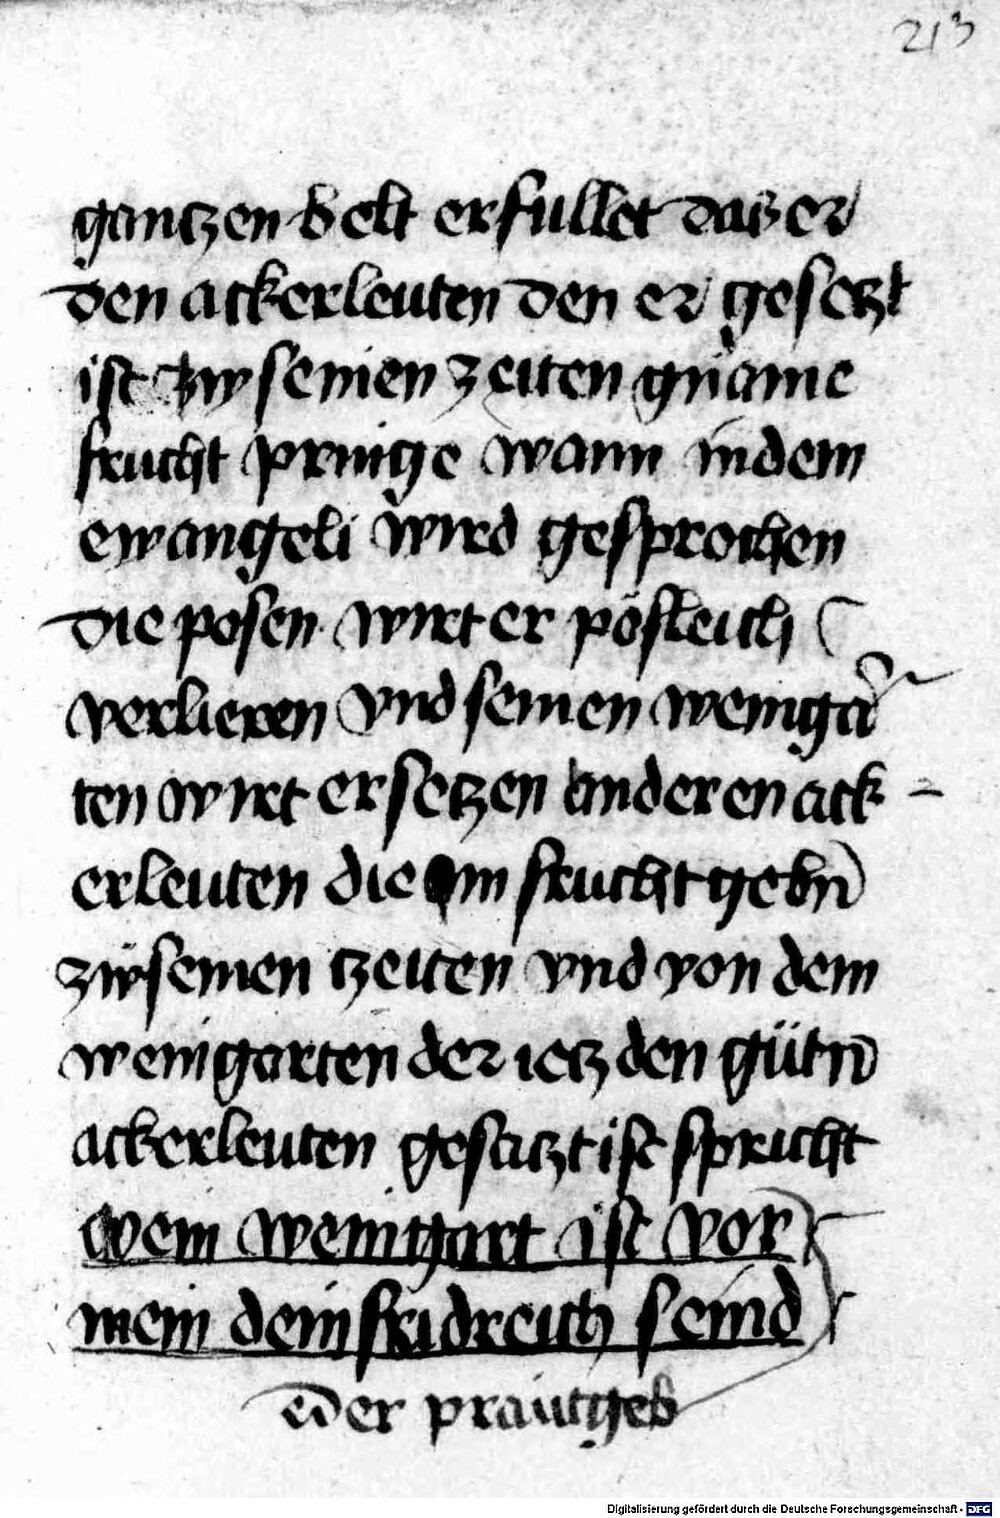 213
gantzen belt erfullet daz er
den ackerleuten den er gesetzt
ist zw seinen zeiten gname
frucht pringe wann in dem
ewangeli wird gesprochen
die posen wirt er posleich
verlieren vnd seinen weingar
ten wirt er setzen anderen ack-
erleuten die im frucht gebn
zw seinen tzeiten vnd von dem
weingarten der ietz den gütn
ackerleuten gesatzt ist spricht
Mein weingart ist vor
mein dein fridreich seind
der prautgeb
Digitalisierung gefördert durch die Deutsche Forschungsgemeinschaft - DFG